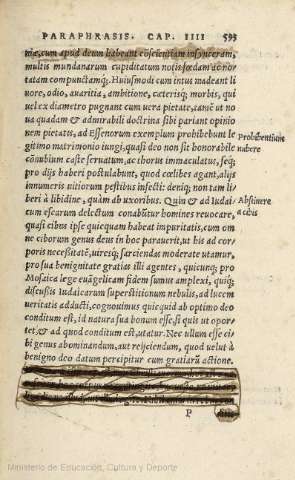 PARAPHRASIS. CAP. IIII 595
miæ, cum apud deum habeant cōscientiam insynceram,
multis mundanarum cupiditatum notis fœdam ac no
tatam compunctamq;. Huiusmodi cum intus madeant li
uore, odio, auaritia, ambitione, cæterisq; morbis, qui
uel ex diametro pugnant cum uera pietate, tamē ut no
ua quadam & admirabili doctrina sibi pariant opinio
nem pietatis, ad Essenorum exemplum prohibebunt le
gitimo matrimonio iungi, quasi deo non sit honorabile
cōnubium caste seruatum, ac thorus immaculatus, seq;
pro dijs haberi postulabunt, quod cœlibes agant, alijs
innumeris uitiorum pestibus infecti: deniq; non tam li
beri à libidine, quàm ab uxoribus. Quin & ad Iudai
cum escarum delectum conabūtur homines reuocare,
quasi cibus ipse quicquam habeat impuritatis, cum om
ne ciborum genus deus in hoc parauerit, ut his ad cor
poris necessitatē, uiresq; sarciendas moderate utamur,
pro sua benignitate gratias illi agentes, quicunq; pro
Mosaica lege euangelicam fidem sumus amplexi, quiq;
discussis Iudaicarum superstitionum nebulis, ad lucem
ueritatis adducti, cognouimus quicquid ab optimo deo
conditum est, id natura sua bonum esse, si quis ut opor
tet, & ad quod conditum est, utatur. Nec ullum esse ci
bi genus abominandum, aut reijciendum, quod uelut à
benigno deo datum percipitur cum gratiarū actione.
P
Prohibentium
nubere
Abstinere
a cibis
Ministerio de Educación, Cultura y Deporte